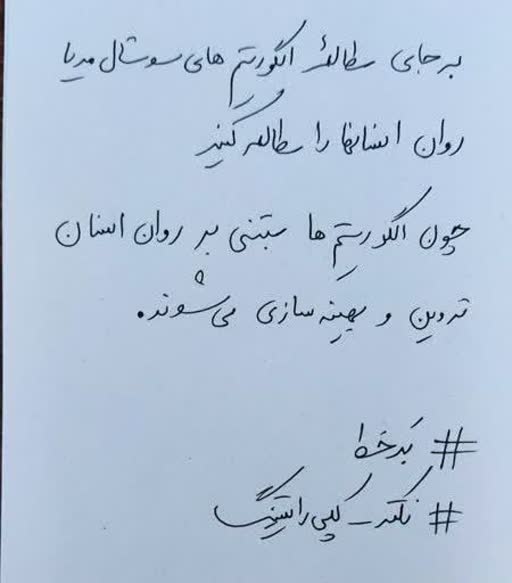 بر جای مطالعهٔ الگوریتم های سوشال مدیا
روان انسانها را مطالعه کنید
چون الگوریتم ها مبتنی بر روان انسان
تدوین و بهینه سازی می شوند.
# بدخط
# نکته_کپی رایتینگ